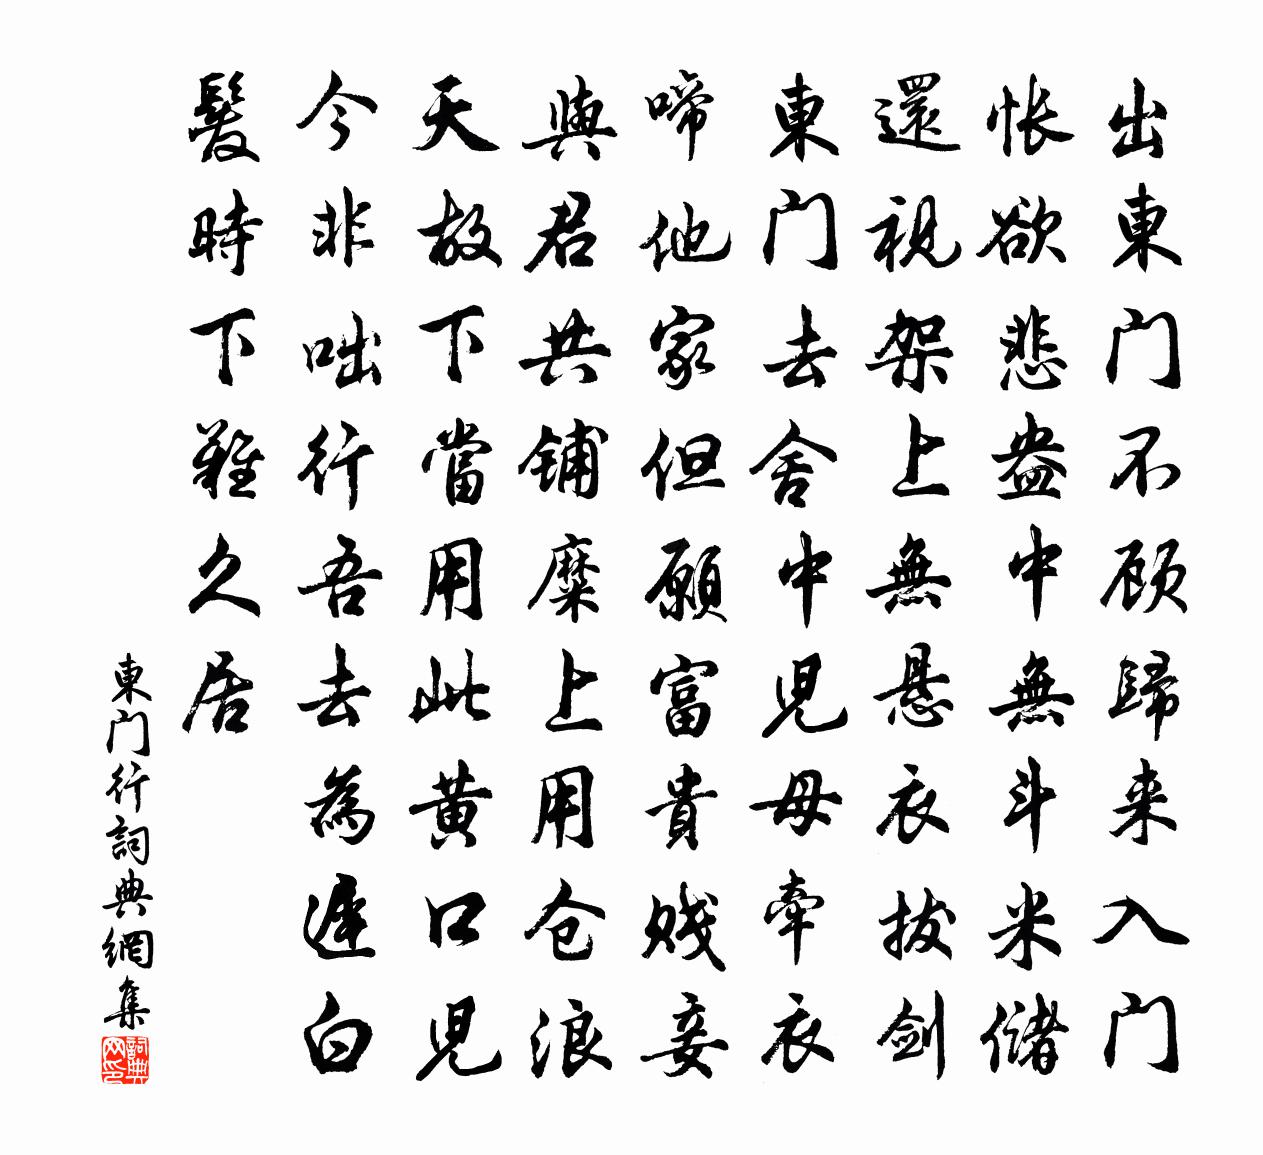 出東门不顾歸来入门
怅欲悲盎中無斗米儲
還視架上無悬衣拔剑
東门去舍中児母牽衣
啼他家但願富貴贱妾
與君共铺糜上用仓浪
天故下當用此黄口児
今非咄行吾去為遲白
髮時下難久居
東门行詞典網集
詞典网印